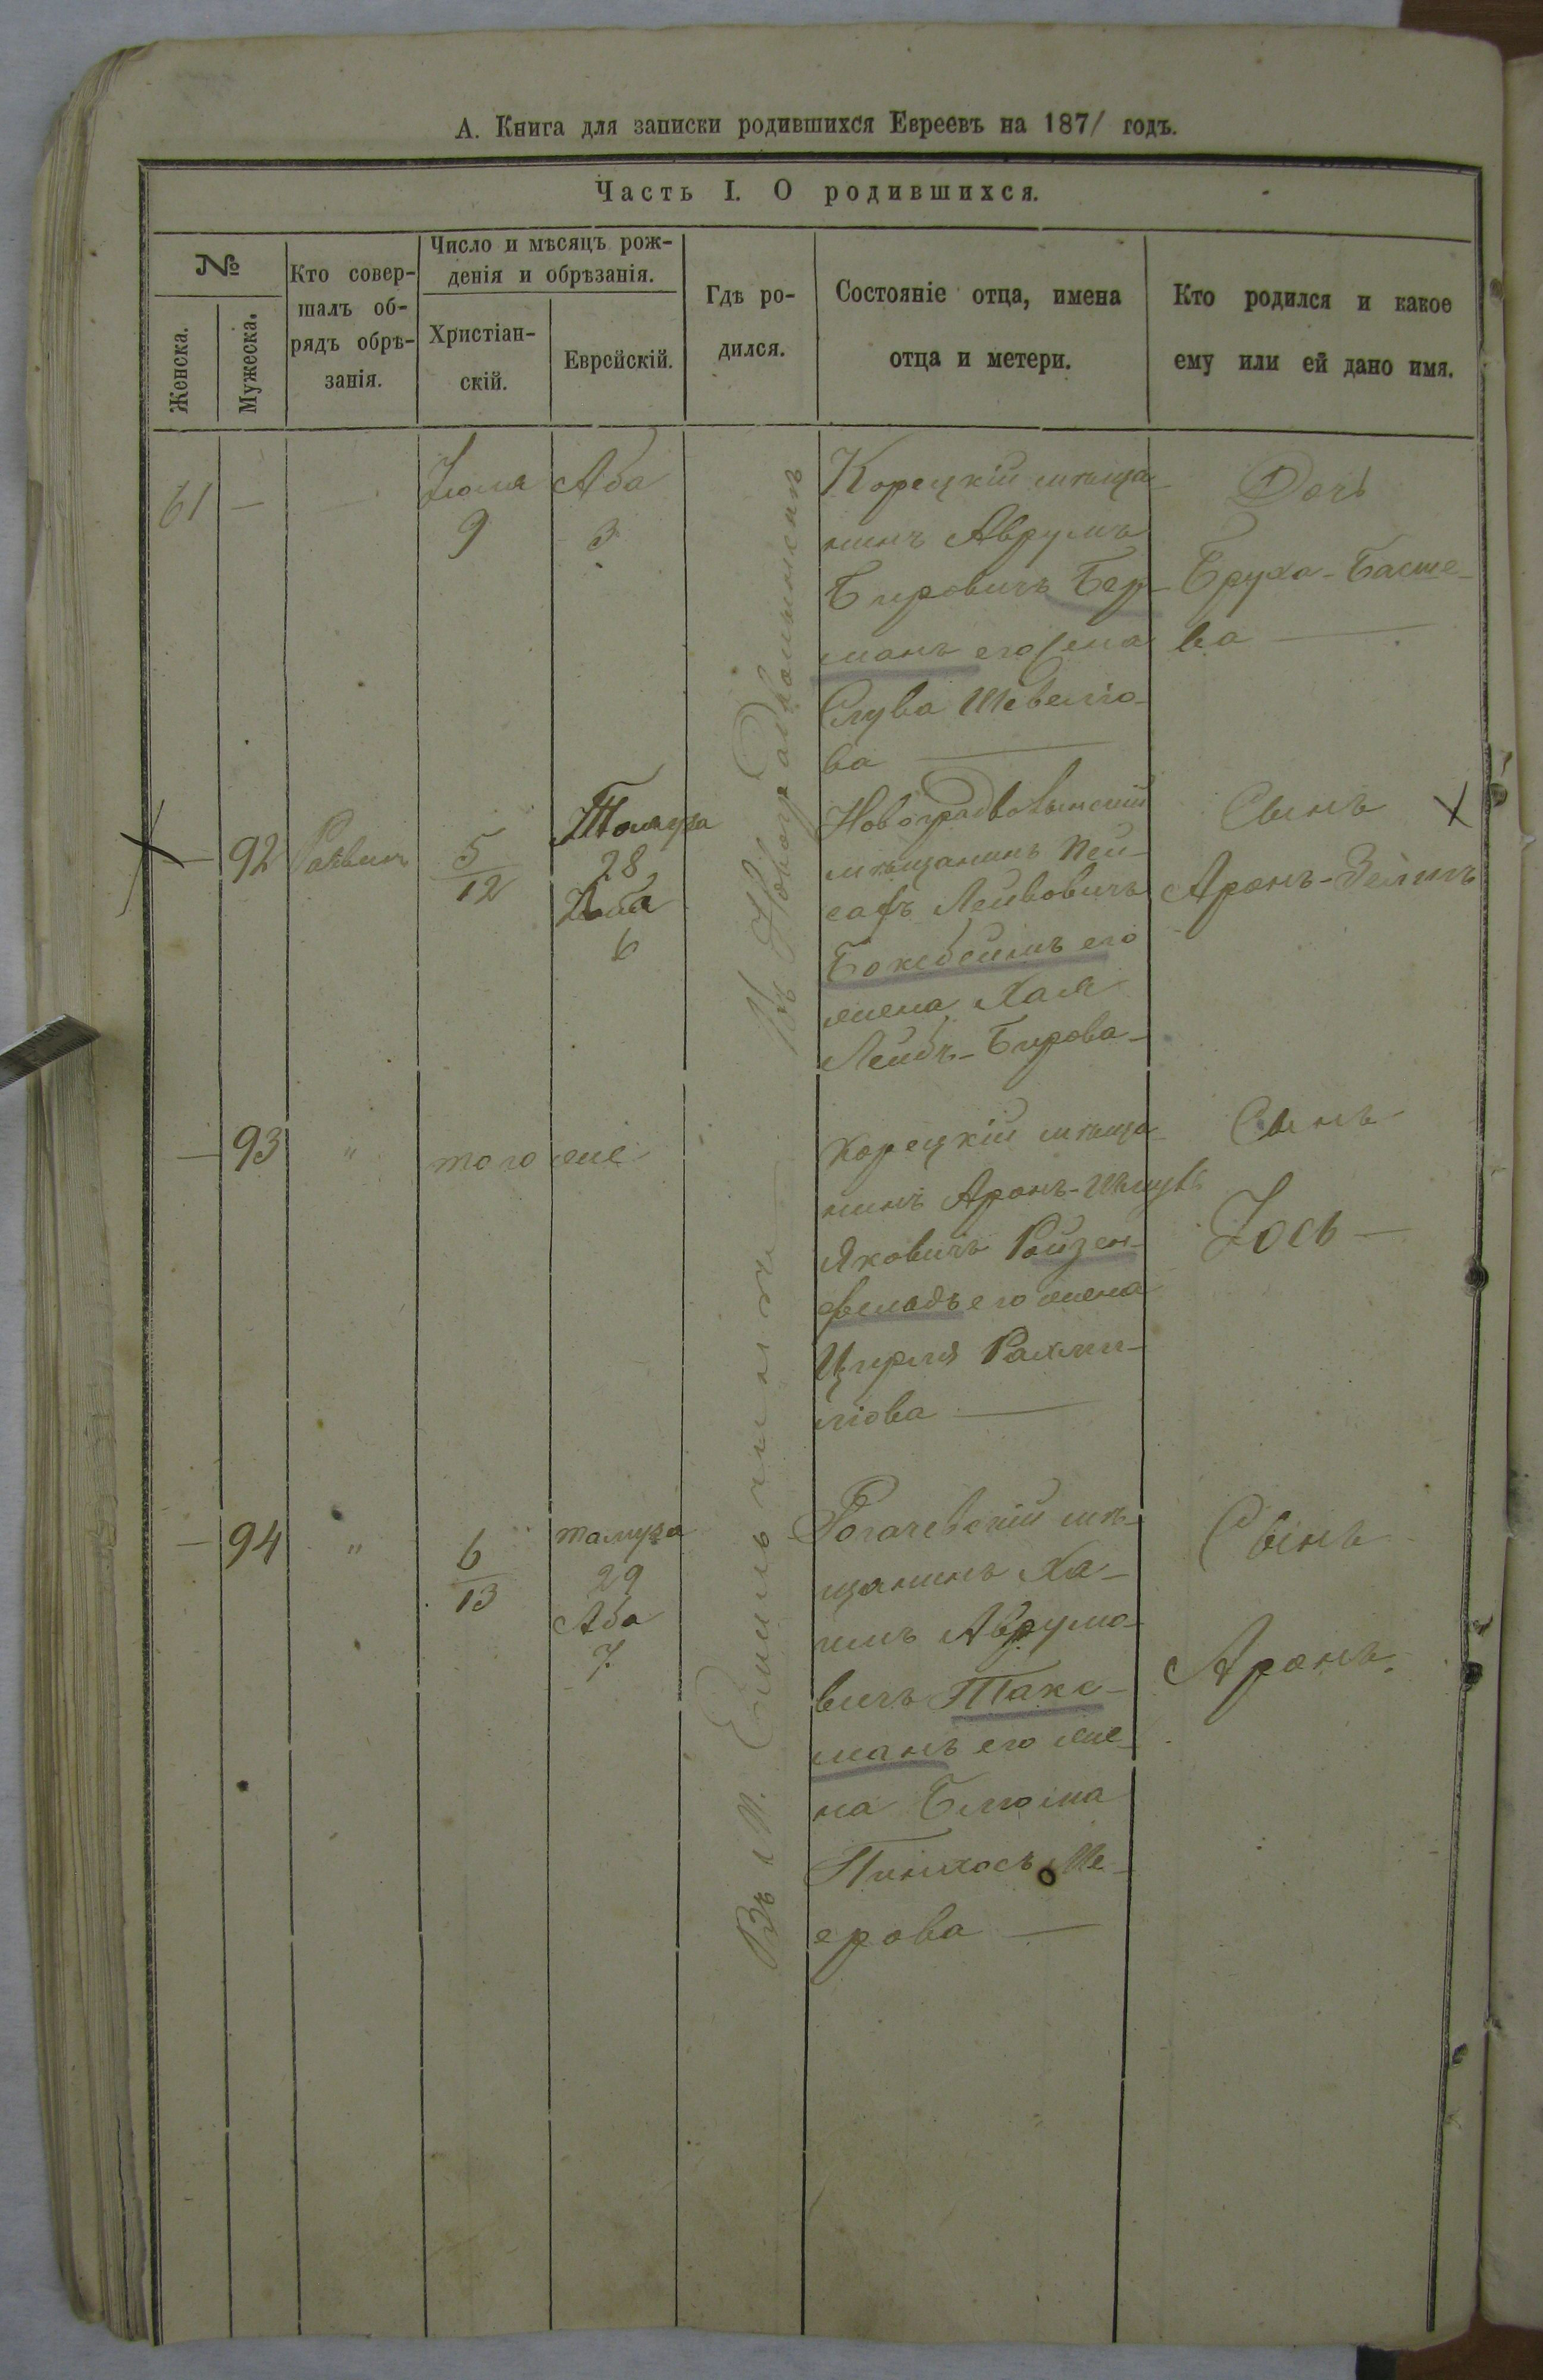 А. Книга для записки родившихся Евреевъ на 1871 годъ.
Часть I. О родившихся.
№
Женска.
Мужеска.
Кто совер-
шалъ об-
рядъ обрѣ-
занія.
Число и мѣсяцъ рож-
денія и обрѣзанія.
Христіан-
скій.
Еврейскій.
Гдѣ ро-
дился.
Состояніе отца, имена
отца и метери.
Кто родился и какое
ему или ей дано имя.
61
—
—
Іюля
9
Аба
3
Корецкій мѣща-
нинъ Аврумъ
Бировичъ Бер-
манъ его жена
Слува Шевеліо-
ва —
Дочь
Бруха-Басше-
ва —
—
92
Раввинъ
5
12
Тамуза
28
Аба
6
Новоградволынскій
мѣщанинъ Пей-
сахъ Лейбовичъ
его
жена Хая
Лейбъ-Бирова-
Сынъ
Аронъ-Зелигъ
—
93
"
того же
Корецкій мѣща-
нинъ Аронъ-Шмуль
Яковичъ Ройзен-
фельдъ его жена
Цирля Рахми-
ліова —
Сынъ
Іось —
—
94
"
6
13
тамуза
29
Аба
7.
Рогачевскій мѣ-
щанинъ Ха-
имъ Аврумо-
вичъ Такс-
манъ его же-
на Блюма
Пинхосъ Ме-
ерова —
Сынъ
Аронъ.
Въ М. Емильчинѣ
Въ Новоградволынскѣ